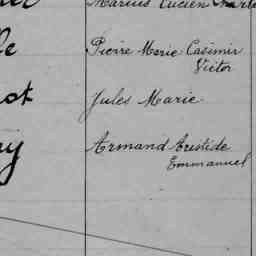 Marius Lucien Charles
le
Pierre Marie Casimir
Victor
ot
Jules Marie
Armand Aristide
Emmanuel